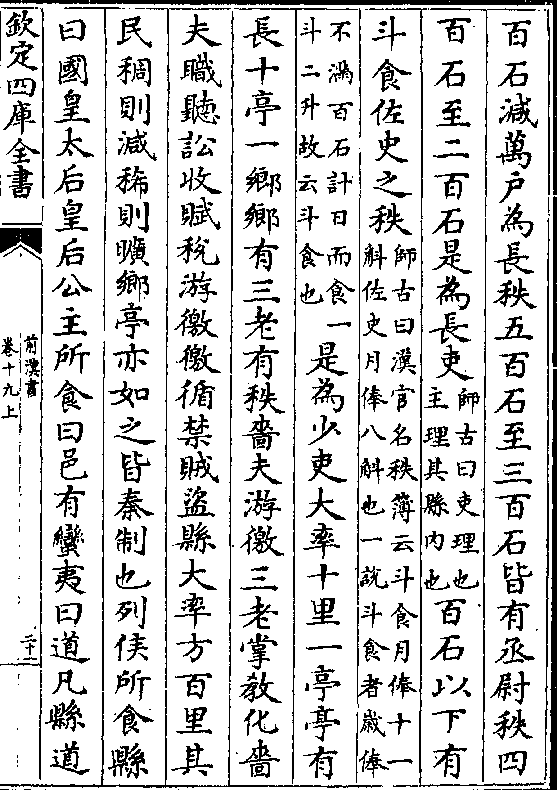 百石減萬戶為長秩五百石至三百石皆有丞尉秩四
百石至二百石是為長吏師古曰吏理也主理其縣內也百石以下有
斗食佐史之秩師古曰漢官名秩簿云斗食月俸十一斛佐史月俸八斛也一說斗食者歲俸
不滿百石計日而食一斗二升故云斗食也是為少吏大率十里一亭亭有
長十亭一鄉鄉有三老有秩嗇夫游徼三老掌教化嗇
夫職聽訟收賦稅游徼徼循禁賊盜縣大率方百里其
民稠則減稀則曠鄉亭亦如之皆秦制也列侯所食縣
曰國皇太后皇后公主所食曰邑有蠻夷曰道凡縣道
欽定四庫全書
前漢書
卷十九上
二十一